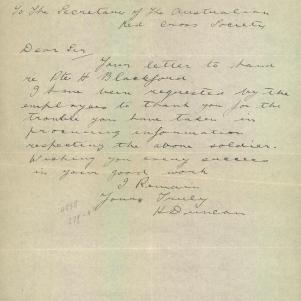 To The Secretary of The Australian
Red Cross Society
Dear Sir,
Your letter to hand
re Pte H Blackford
I have been requested by the
employees to thank you for the
trouble you have taken in
procuring information
respecting the above soldier.
Wishing you every success
in your good work
I Remain
Yours Truly
H Duncan